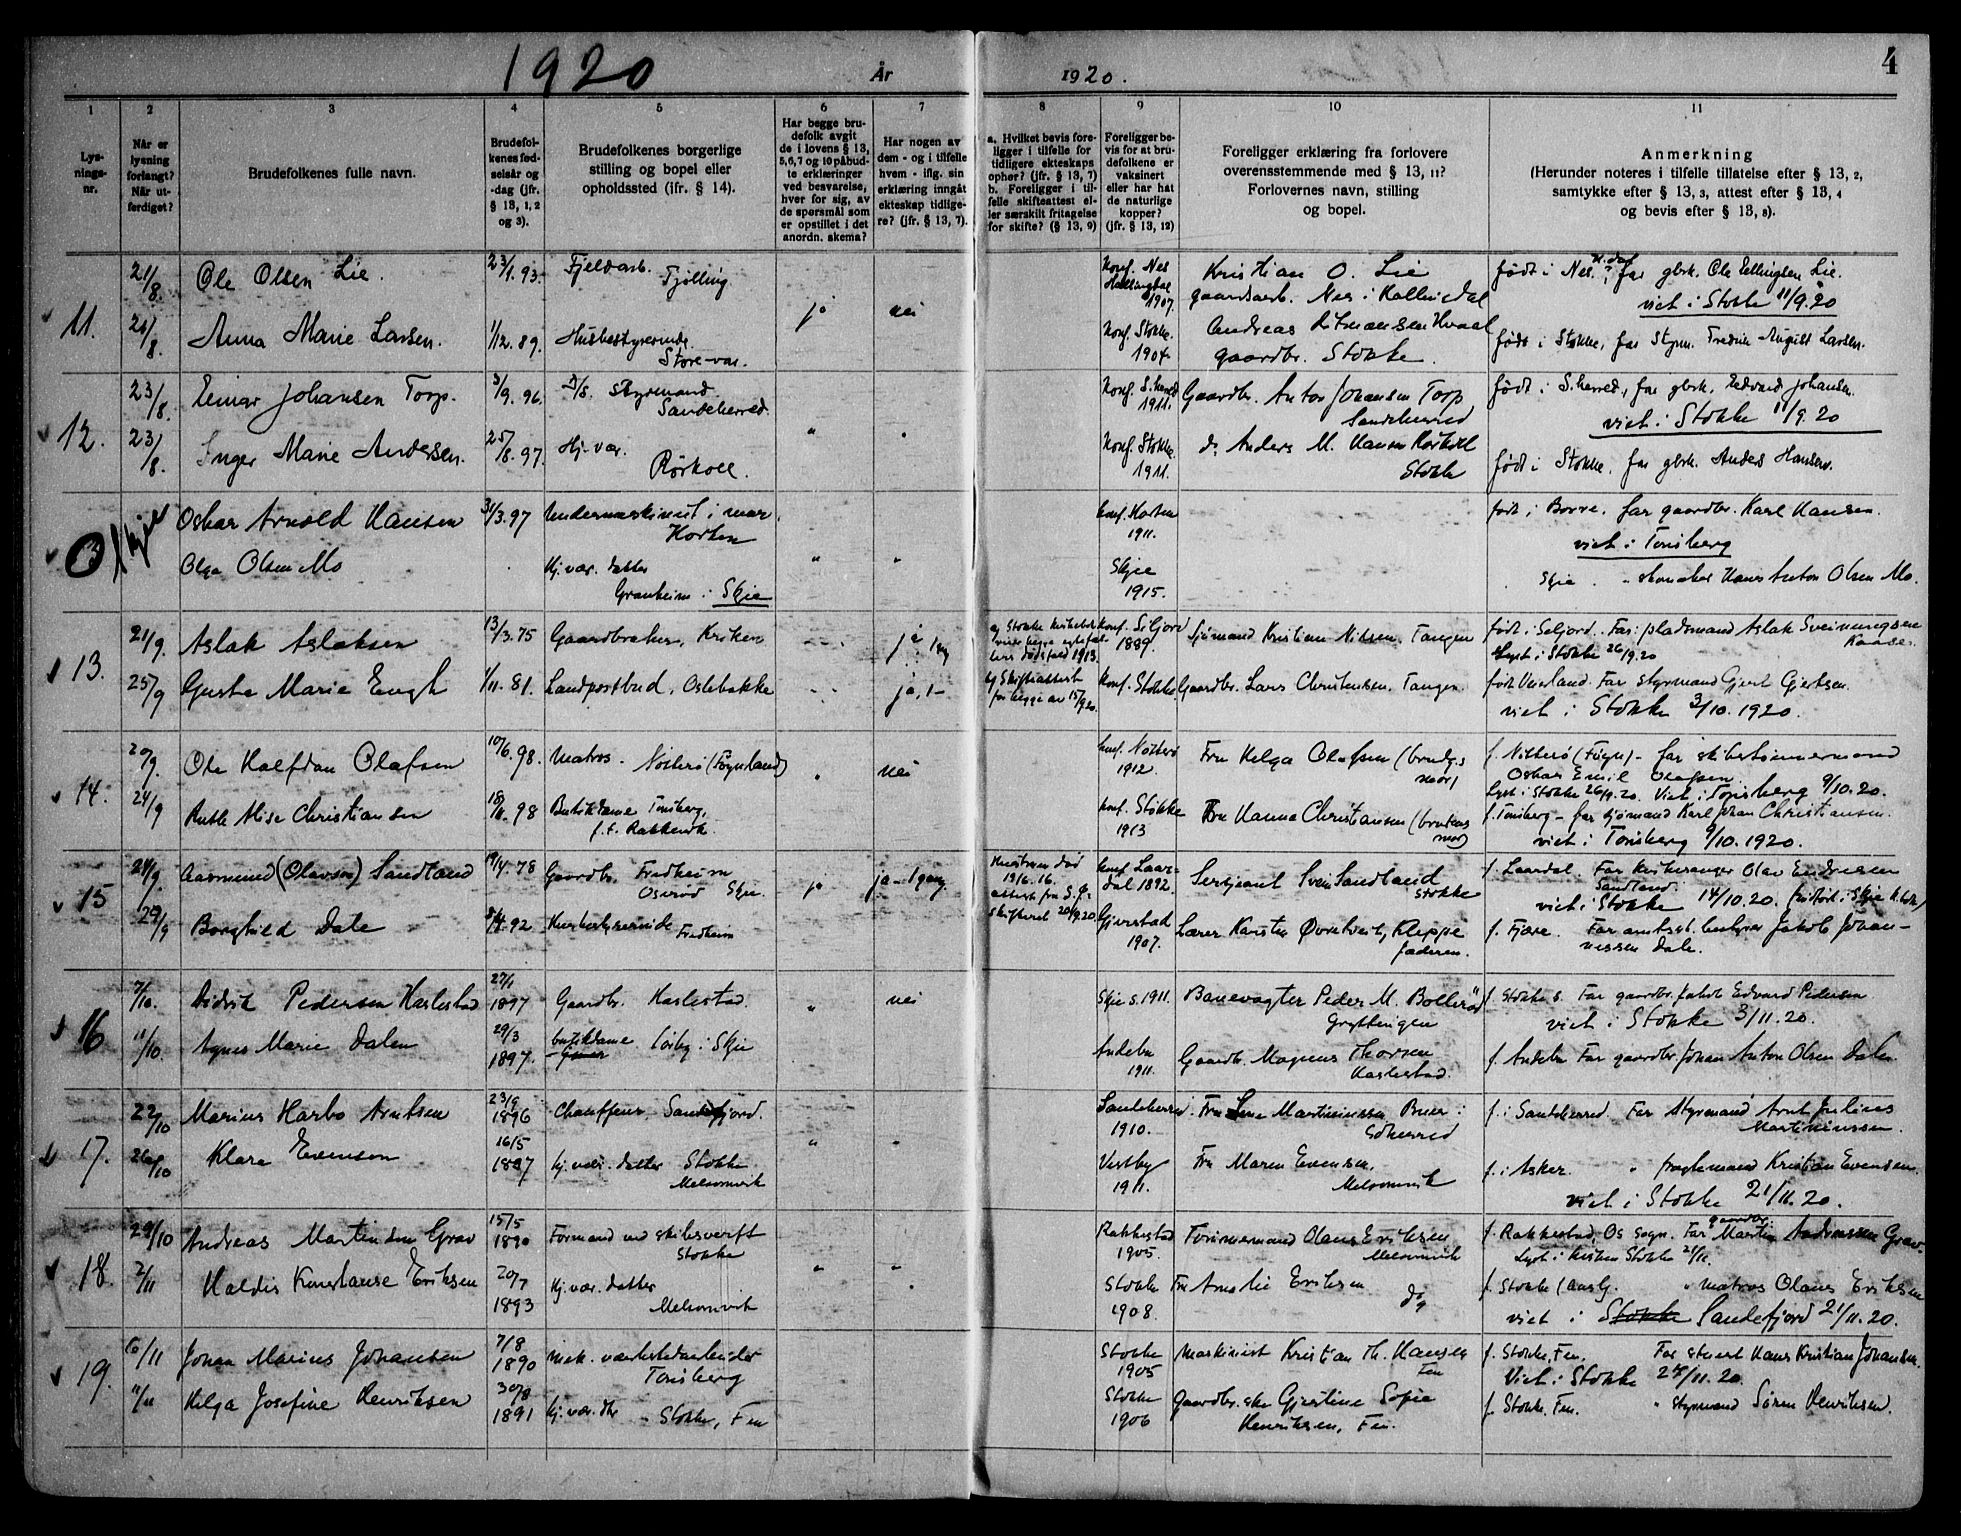 1920
År
1920.
4
1
2
3
4
5
6
7
8
9
10
11
Lys-
nings-
nr.
Når er
lysning
forlangt?
Når ut-
ferdiget?
Brudefolkenes fulle navn.
Brudefol-
kenes fød-
selsår og
-dag (jfr.
§ 13, 1, 2
og 3).
Brudefolkenes borgerlige
stilling og bopel eller
opholdssted (jfr. § 14).
Har begge bru-
defolk avgit
de i lovens § 13,
5,6,7 og 10 påbud-
te erklæringer
ved besvarelse,
hver for sig, av
de spørsmål som
er opstillet i det
anordn. skema?
Har nogen av
dem - og i tilfelle
hvem - iflg. sin
erklæring inngått
ekteskap tidlige-
re? (jfr. § 13, 7).
a. Hvilket bevis fore-
ligger i tilfelle for
tidligere ekteskaps
ophør? (jfr. § 13, 7)
b. Foreligger i til-
felle skifteattest el-
ler særskilt fritagelse
for skifte? (§ 13, 9)
Foreligger be-
vis for at bru-
defolkene er
vaksinert
eller har hat
de naturlige
kopper?
(jfr. § 13, 12)
Foreligger erklæring fra forlovere
overensstemmende med § 13, 11?
Forlovernes navn, stilling
og bopel.
Anmerkning
(Herunder noteres i tilfelle tillatelse efter § 13, 2,
samtykke efter § 13, 3, attest efter § 13, 4
og bevis efter § 13, 8).
11.
21/8. Ole Olsen Lie. 23/1.93. Fjeldarb. Tjølling ja nei
Konf. Nes Hallingdal 1907. Kristian O. Lie
gaardsarb. Nes i Hallingdal
født i Nes, far gbrk. Ole Ellingsen Lie.
viet i Stokke 11/9.20
21/8. Anna Marie Larsen. 1/12.89. Husbestyrerinde
Store-var.
Konf. Stokke. 1904. Andreas Hvaal
gaardbr. Stokke.
født i Stokke, far Styrm. Fredrik August Larsen.
12.
23/8. Einar Johansen Torp. 3/9.96. D/S. Styrmand
Sandeherred. "
Konf. S.herred 1911. Gaardbr. Anton Johansen Torp
Sandeherred
født i S.herred, far gbrk. Edvard Johansen.
viet i Stokke 11/9.20
23/8. Inger Marie Andersen. 25/8.97. Hj. vær.
Rørkoll.
Konf. Stokke. 1911. do Anders M. Hansen Rørkoll
Stokke
født i Stokke, far gbrk. Anders Hansen.
Skjee
Oskar Arnold Hansen 31/3.97 Undermaskinist i mar
Horten
konf. Horten 1911.
født i Borre. far gaardbr. Karl Hansen.
viet i Tønsberg
Olga Olsen Mo Hj. vær. datter
Granheim i Skjee " "
Skjee 1915.
Skjee " skomaker Hans Anton Olsen Mo.
13.
21/9. Aslak Aslaksen 13/3.75 Gaardbruker, ja 1 gg
konf. Seljord 1889. Sjømand Kristian Nilsen, Tangen
født i Seljord. Far: pladsmand Aslak Sveinungsen
Lyst i Stokke 26/9.20
25/9 Gusta Marie Engh 1/11.81. Landpostbud, Oslebakke ja, 1 -
b) Skifteattest
for begge av 15/9 20.
konf. Stokke Gaardbr. Lars Christensen, Tangen.
født Veierland. Far styrmand Gjert Gjertsen.
viet i Stokke 3/10.1920.
14.
20/9. Ole Halfdan Olafsen 10/6.98. Matros. Nøtterø (Føynland) " nei
konf. Nøtterø 1912. Fru Helga Olafsen (brudg.s
mor)
f. Nøtterø (Føyn) - far skibstømmermand
Oskar Emil Olafsen.
Lyst i Stokke 26/9.20. Viet i Tønsberg 9/10.20.
24/9 Ruth Alise Christiansen 98 Butikdame Tønsberg,
konf. Stokke 1913 Fru Hanna Christiansen (brudens
mor)
f. Tønsberg - far sjømand Karl Johan Christiansen.
viet i Tønsberg 9/10.1920.
15
21/9. Aasmund (Olavson) Sandland 19/4.78 Gaardbr. Fredheim
Oserød Skjee ja ja - 1 gang
Hustruen død
konf. Laar-
dal 1892. Serjeant Svein Sandland
Stokke
f. Laardal. Far kirkesanger Olav Eivindsen
Sandland
viet i Stokke 14/10.20.
29/9 Borghild Dale 92 Husbestyrerinde Fredheim
Gjerstad
1907. Lærer Karsten Kleppe
Jæderen.
f. Fjære. Far amtsst. Jakob Johan-
nessen Dale.
16
7/10. Didrik Pedersen Haslestad 27/1
1897 Gaardbr. Haslestad. " nei
Skjee s. 1911. Banevagter Peder M. Bollerød
Gryttingen
f. Stokke s. Far gaardbr. Jakob Edvard Pedersen
viet i Stokke 3/11.20.
11/10 Agnes Marie Dalen 29/3
1897. butikdame i Skjee
Andebu
1911. Gaardbr. Magnus Thorsen
Haslestad.
f. Andebu Far gaardbr. Johan Anton Olsen Dalen
17.
22/10 Marius Harbo Arntsen 23/9
1896 Chauffeur Sandefjord. " "
Sandeherred
1910. Fru Lene Martiniussen Buer i
Sdherred
f. i Sandeherred. Far Styrmand Arnt Julius
Martiniussen.
26/10 Klara Evensen 16/5
1897 hj. vær. datter Stokke
Melsomvik
Vestby
1911. Fru Maren Evensen,
Melsomvik
f. i Asker. " fragtemand Kristian Evensen.
viet i Stokke 21/11.20.
18.
29/10 Andreas Martinsen Grav 15/5
1890 Formand ved skibsverft
Stokke " "
Rakkestad
1905. Tømmermand Olaus Eriksen
Melsomvik
f. Rakkestad, Os sogn. Far gaardbr. Martin Andreassen Grav.
Lyst i kirken Stokke
2/11 Haldis Konstanse Eriksen 20/7
1893 hj. vær. datter
Melsomvik
Stokke
1908. Fru Amalie Eriksen
do
f. Stokke " matros Olaus Eriksen
viet i Stokke Sandefjord 21/11.20.
19.
6/11 Johan Marius Johansen 7/8
1890 Mek. værkstedarbeider
Tønsberg
Stokke
1905 Maskinist Kristian Th. Hansen
Fen
f. Stokke, Fen. Far stuert Hans Kristian Johansen.
Viet i Stokke 28/11.20.
11/11 Helga Josefine Henriksen 30/8
1891 hj. vær. dtr - Stokke, Fen
Stokke
1906 Gaardbr.ske Gjestine Sofie
Henriksen, Fen.
f. Stokke, Fen. " styrmand Søren Henriksen.